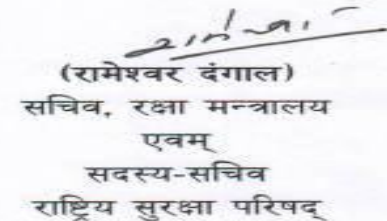 (रामेश्वर दंगाल)
सचिव, रक्षा मन्त्रालय
एवम्
सदस्य-सचिव
राष्ट्रिय सुरक्षा परिषद्